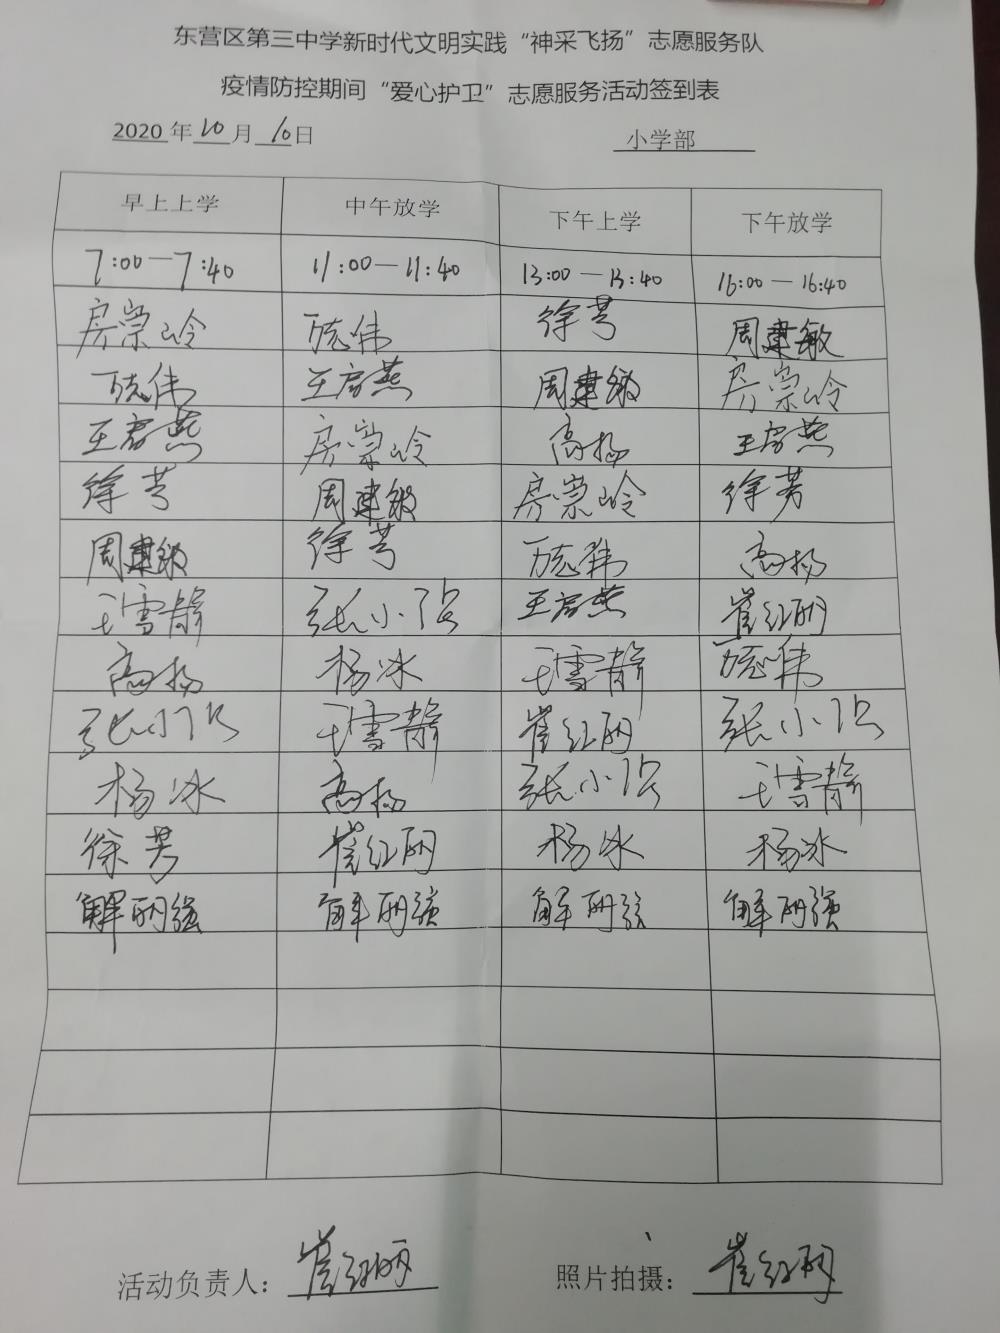 东营区第三中学新时代文明实践“神采飞扬”志愿服务队
疫情防控期间“爱心护卫”志愿服务活动签到表
2020年10月10日 小学部
早上上学 中午放学 下午上学 下午放学
7:00—7:40 11:00—11:40 13:00—13:40 16:00—16:40
房崇岭 万志伟 徐芳 周建敏
万志伟 王启燕 周建敏 房崇岭
王启燕 房崇岭 高杨 王启燕
徐芳 周建敏 房崇岭 徐芳
周建敏 徐芳 万志伟 高杨
王雪静 张小 王启燕 崔红丽
高杨 杨冰 王雪静 万志伟
张小 王雪静 崔红丽 张小
杨冰 高杨 张小 王雪静
徐芳 崔红丽 杨冰 杨冰
解丽强 解丽强 解丽强 解丽强
活动负责人：崔红丽 照片拍摄：崔红丽